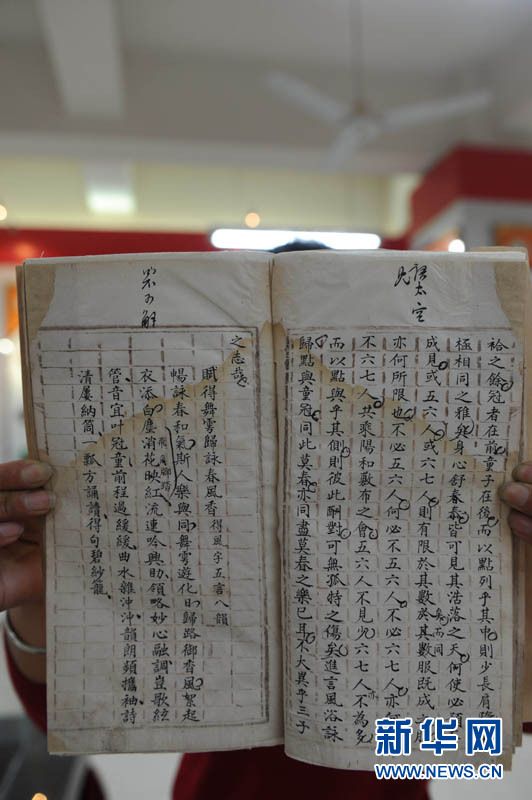 語太空
袷之餘冠者在前童子在後而以點列乎其中則少長肩
極相同之雅與身心舒泰皆可見其浩落之天何使必
成見或五六人或六七人則有限於其數於其數服既成
亦何所限也不必五六人何必不五六人不必六七人亦
不六七人共乘陽和敷布之會五六人不見少六七人不為多
而以點與乎其側則彼此酬對可無孤特之傷矣進言風浴詠
歸點與童冠同此莫春亦同盡莫春之樂已耳不大異乎三子
可解
之志哉
賦得舞雩歸詠春風香得風字五言八韻
暢詠春和氣斯人樂與同舞雩遊化日歸路御香風絮起
衣添白塵消花映紅流連吟興助領略妙心融調豈歌絃
管音宜叶冠童前程過緩緩曲水雜沖沖韻朗頻攜袖詩
清屢納筒一瓢方誦讀得句碧紗籠
新华网
WWW.NEWS.CN